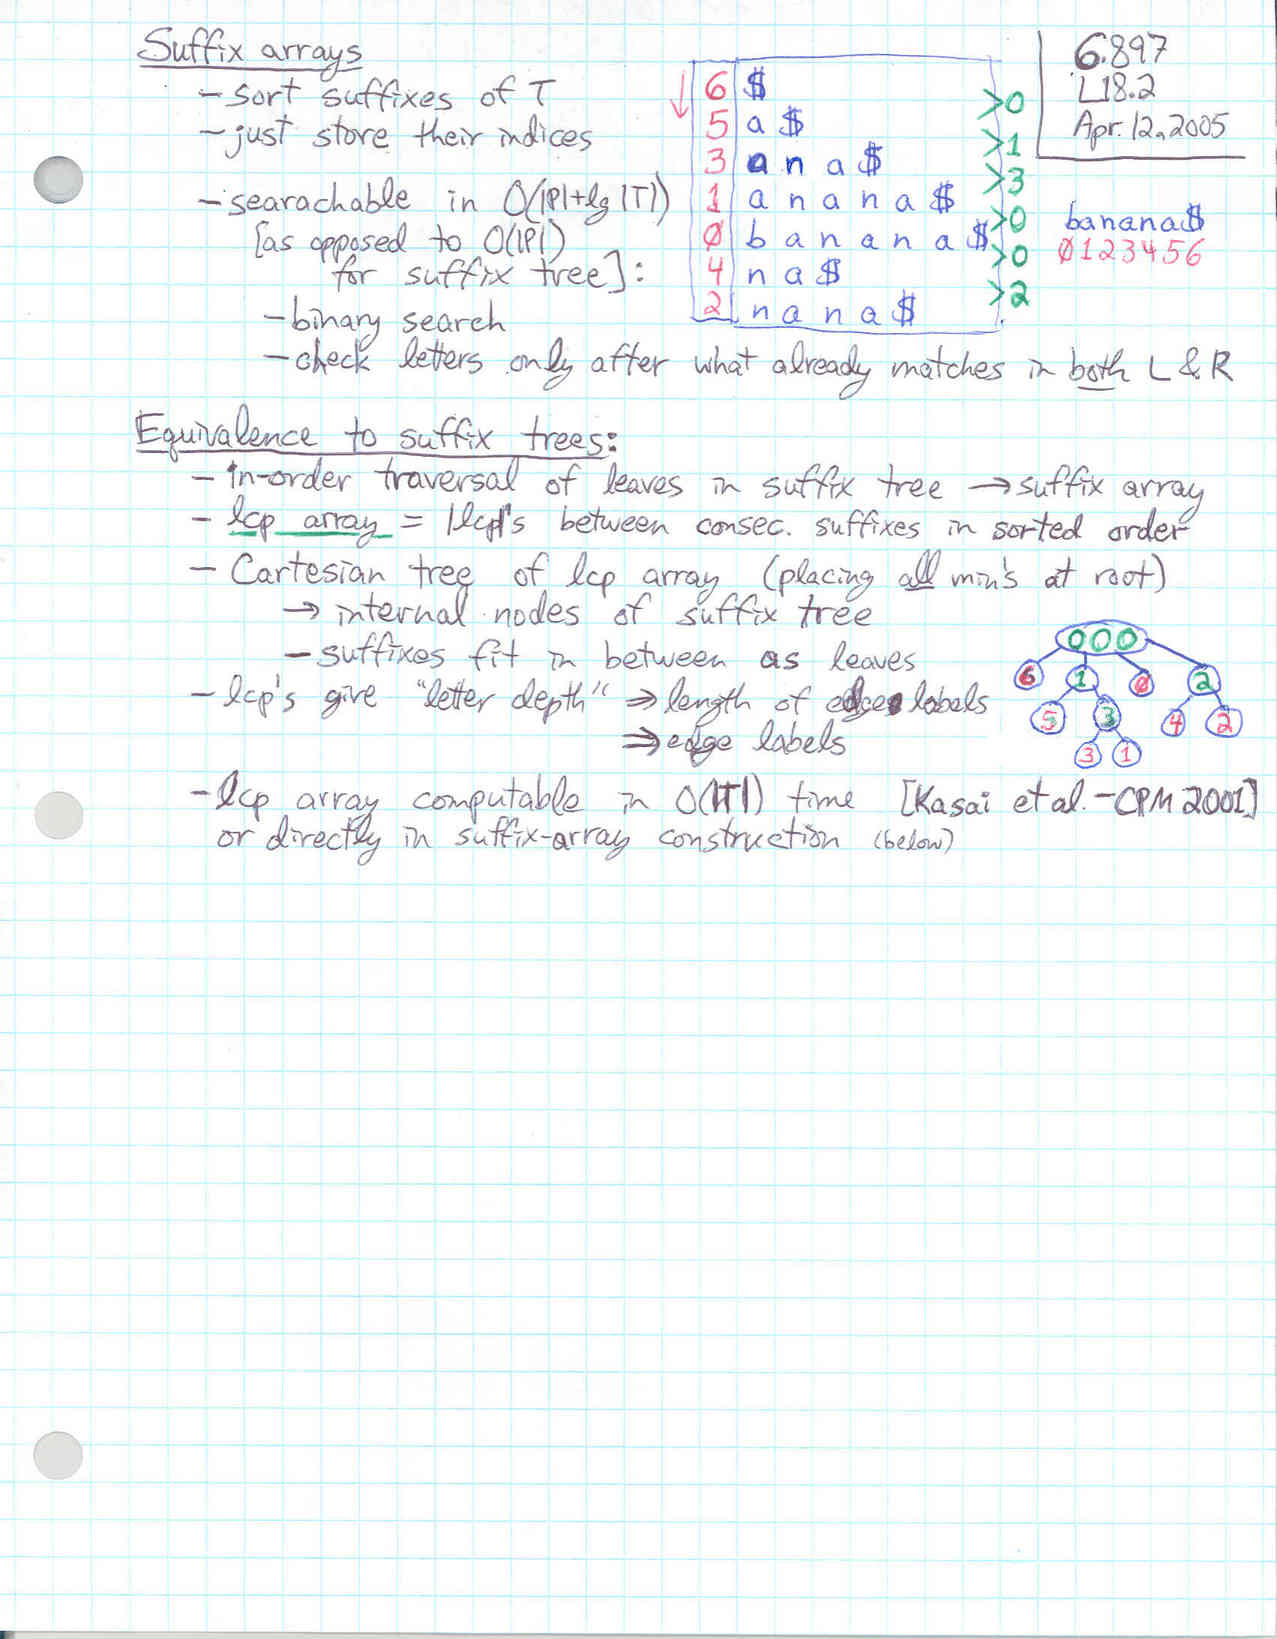 Suffix arrays
6.897
L18.2
Apr. 12, 2005
- sort suffixes of T
- just store their indices
- searachable in O(|P|+lg |T|)
[as opposed to O(|P|)
for suffix tree]:
- binary search
- check letters only after what already matches in both L & R
6 $
>0
5 a $
>1
3 a n a $
>3
1 a n a n a $
>0
0 b a n a n a $
>0
4 n a $
>2
2 n a n a $
banana$
0123456
Equivalence to suffix trees:
- in-order traversal of leaves in suffix tree → suffix array
- lcp array = |lcp|'s between consec. suffixes in sorted order
- Cartesian tree of lcp array (placing all min's at root)
→ internal nodes of suffix tree
- suffixes fit in between as leaves
- lcp's give "letter depth" ⇒ length of edge labels
⇒ edge labels
0 0 0
6 1 0 2
5 3 4 2
3 1
- lcp array computable in O(|T|) time [Kasai et al. - CPM 2001]
or directly in suffix-array construction (below)